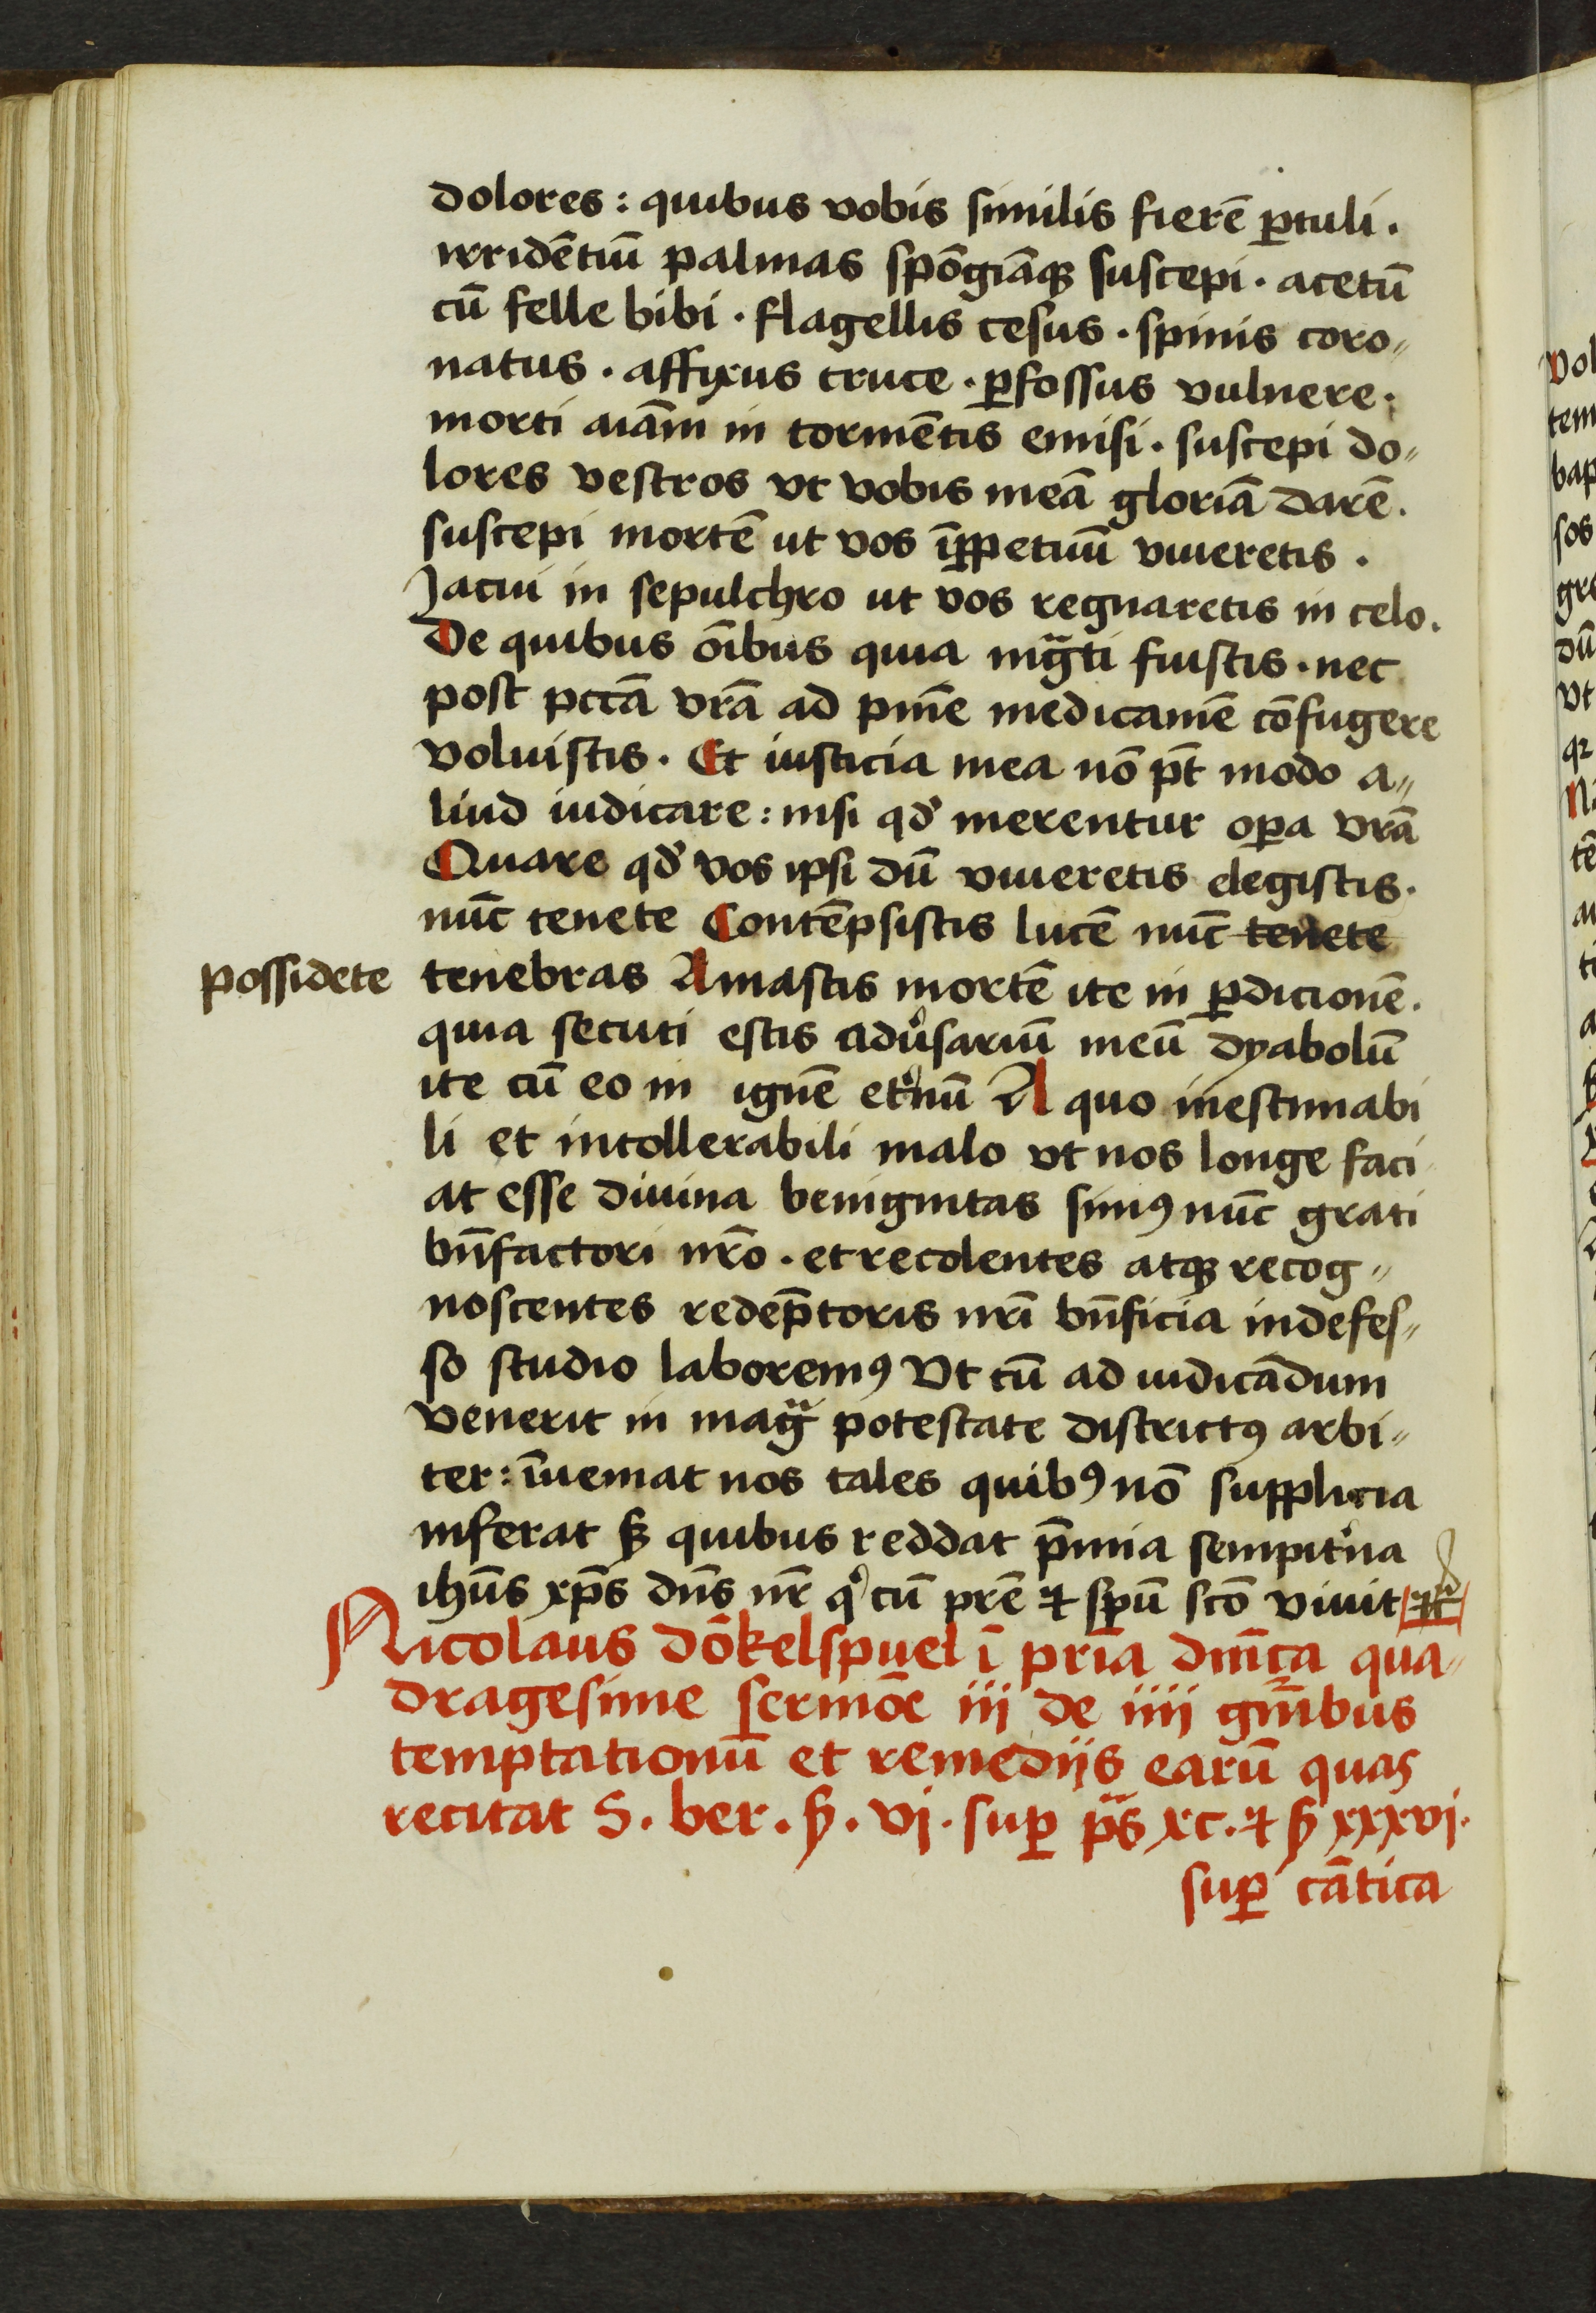 dolores : quibus vobis similis fierē ꝑtuli .
irridētiū palmas spōgiāqꝫ suscepi . acetū
cū felle bibi . flagellis cesus . spinis coro„
natus . affixus cruce . ꝑfossus vulnere .
morti aīam in tormētis emisi . suscepi do„
lores vestros vt vobis meā gloriā darē .
suscepi mortē ut vos īꝑpetuū viueretis .
Jacui in sepulchro ut vos regnaretis in celo .
De quibus oībus quia īgͣti fuistis . nec
post pctā vrā ad pnīe medicamē cōfugere
voluistis . Et iusticia mea nō pt̄ modo a„
liud iudicare : nisi qd̓ merentur oꝑa vrā
Quare qd̓ vos ipsi dū viueretis elegistis .
nūc tenete Contēpsistis lucē nūc tenete
possidete
tenebras Amastis mortē ite in ꝑdicionē .
quia secuti estis adu̓sariū meū dyabolū
ite cū eo in ignē et̓nū A quo inestimabi
li et intollerabili malo vt nos longe faci
at esse diuina benignitas simꝰ nūc grati
bn̄factori nr̄o . et recolentes atqꝫ recog„
noscentes redēptoris nr̄i bn̄ficia indefes„
so studio laboremꝰ Vt cū ad iudicādum
venerit in magͣ potestate districtꝰ arbi„
ter : īueniat nos tales quibꝰ nō supplicia
inferat sꝫ quibus reddat p̄mia sempit̓na
ihūs xp̄s dn̄s nr̄ qͥ cū pr̄e ⁊ spū scō viuit ⁊c̄
Nicolaus dō̄kelspuel ī pria dn̄ica qua„
dragesime sermōe iij de iiij gn̄ībus
temptationū et remedijs earū quas
recitat S . ber . ẞ . vj . suꝑ ps̄ xc . ⁊ ẞ xxxvj .
suꝑ cātica